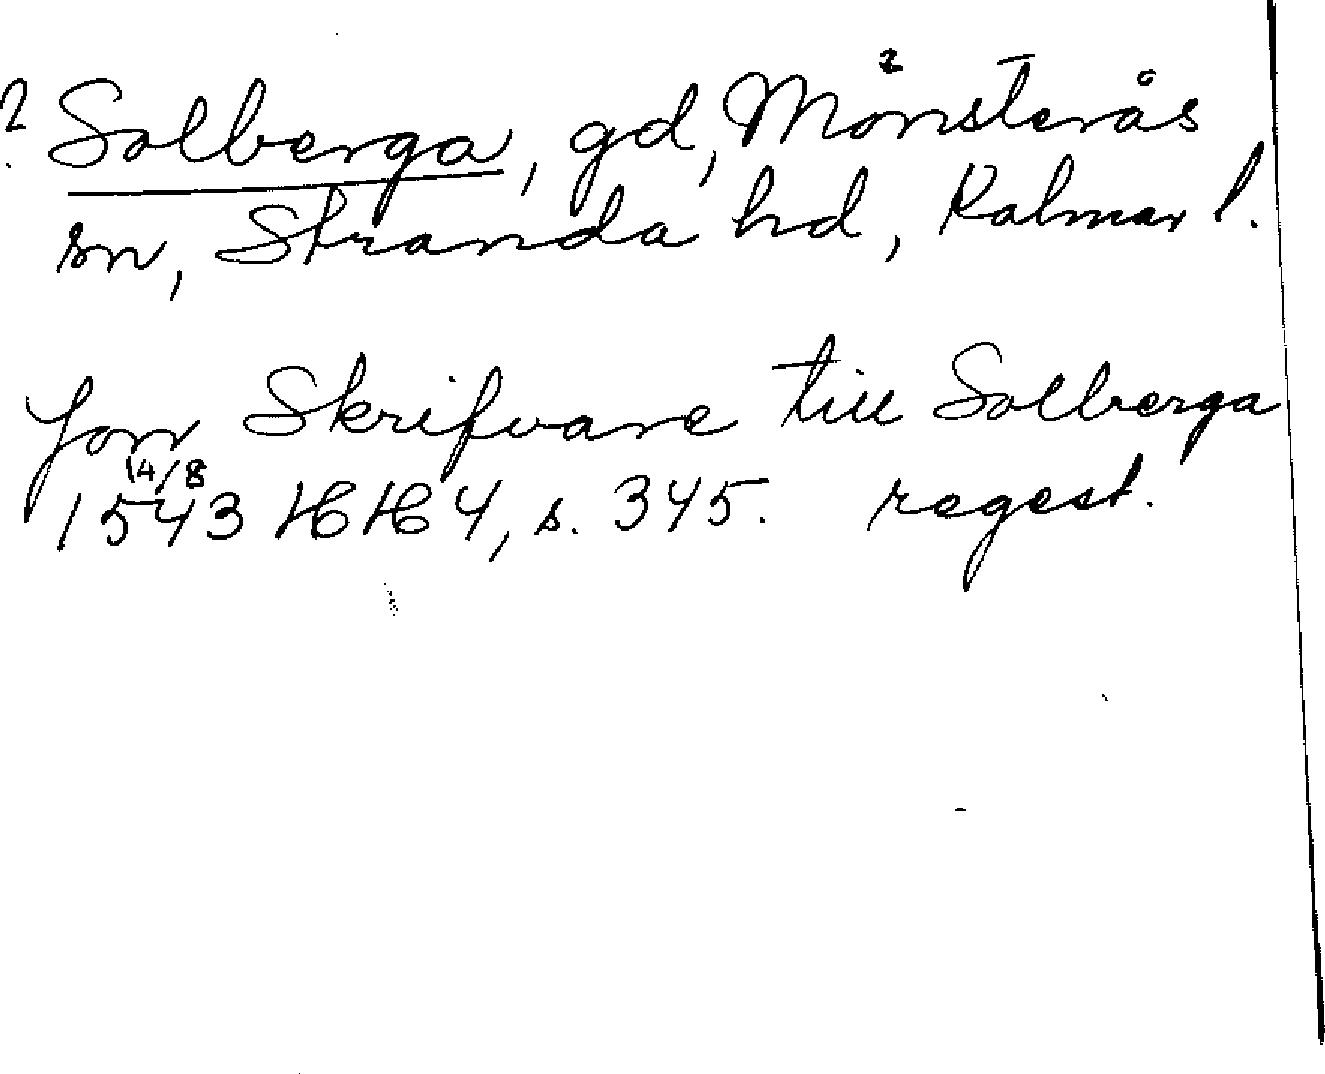 ? Solberga, gd, Mönsterås
sn, Stranda hd, Kalmar l.
Jon Skrifvare till Solberga
14/8
1543 HH 4, s. 345. regest.